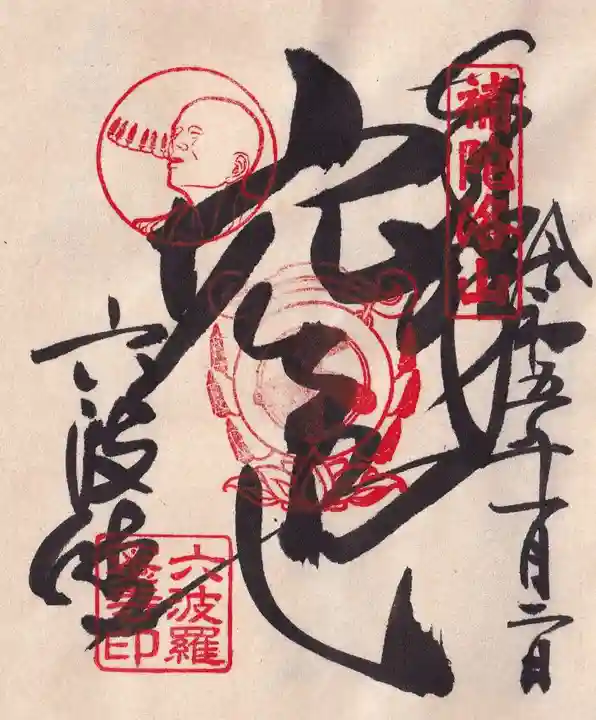 奉拝
補陀洛山
令和五年一月二日
空也
六波
六波羅
蜜寺印